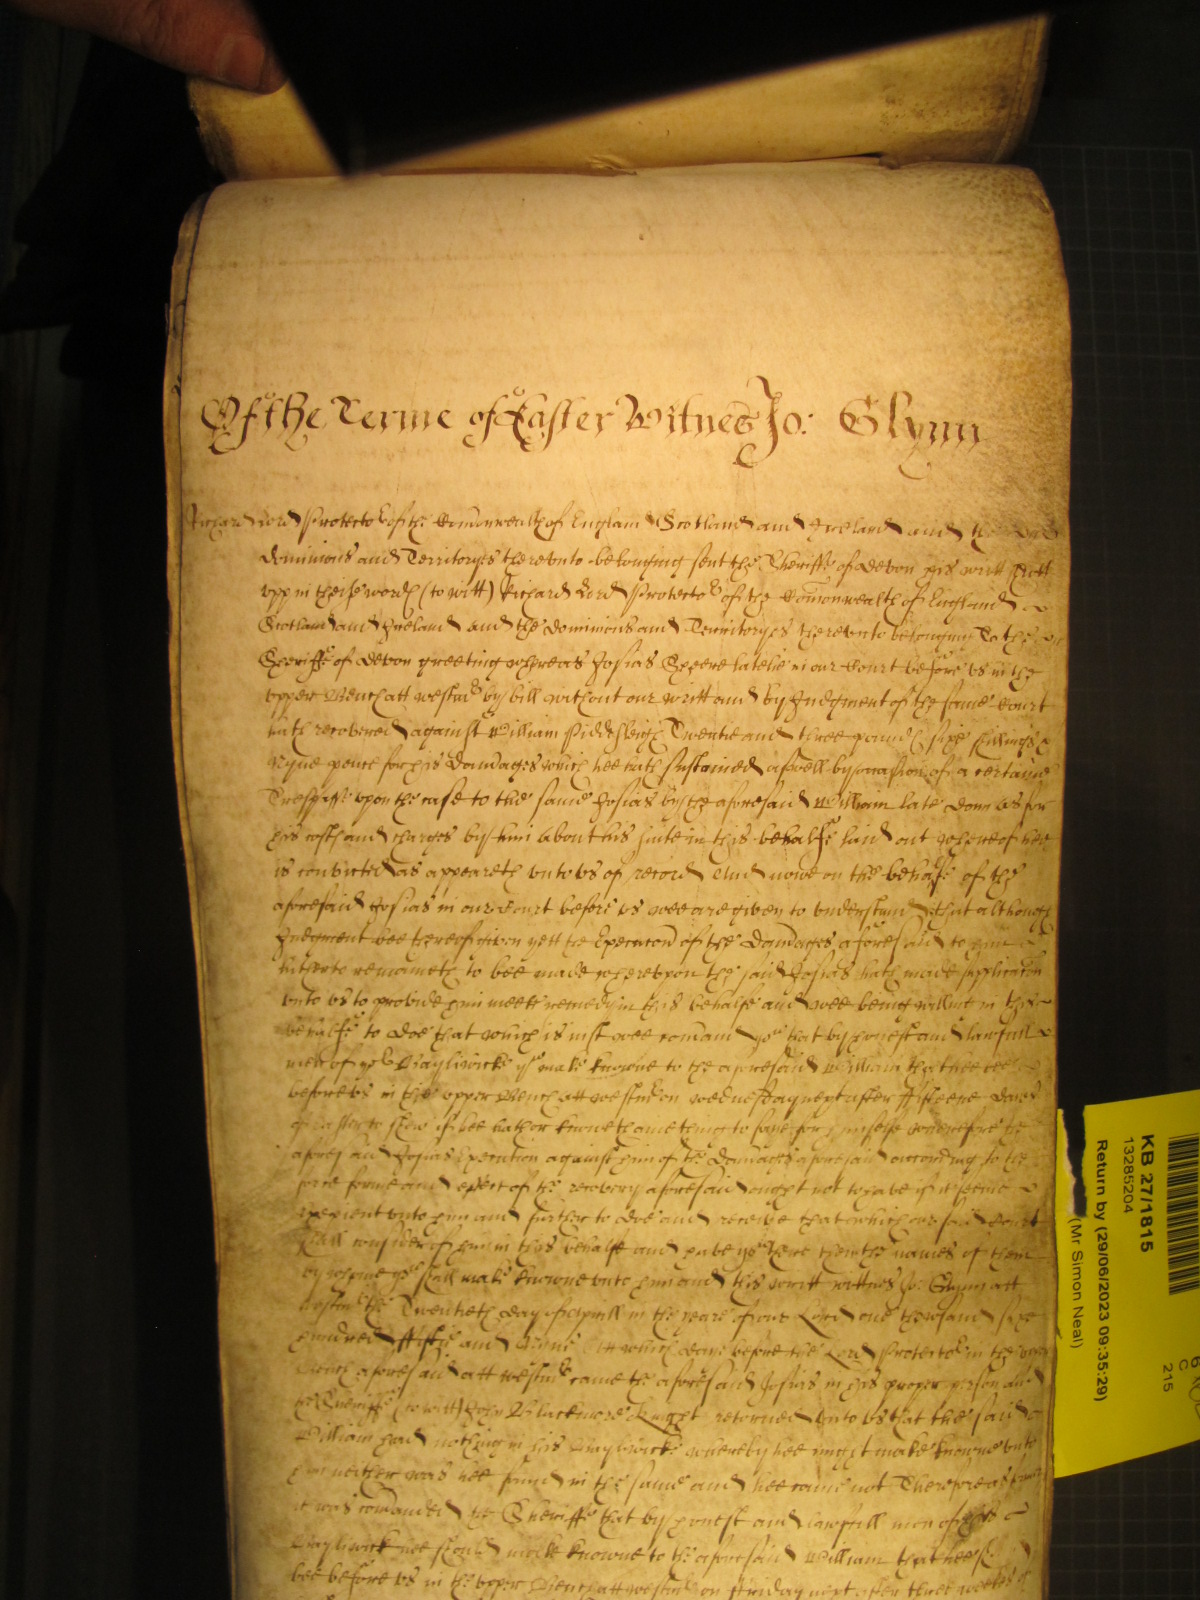 Of the Terme of Easter Witnes Jo: Glynn
Richard Lord Protector of the Comonwealth of England Scotland and Ireland and the
dominions and Territoryes therevnto belonging sent the Sheriffe of Devon his writt
vpp in theise words (to witt) Richard Lord Protector of the Comonwealth of England
Scotland and Ireland and the dominions and Territoryes therevnto belonging To the
Sheriffe of Devon greeting whereas Josias Speere latelie in our Court before vs in the
vpper Bench att Westmr by bill without our writt and by Judgment of the same Court
hath recovered against William Twentie and three pounds sixe shillings &
nyne pence for his damages which hee hath susteined aswell by occasion of a certaine
Trespasse vpon the case to the same Josias by the aforesaid William late donn as for
his costs and charges by him about his suite in this behalfe laid out whereof hee
is convicted as appeareth vnto vs of record And nowe on the behalfe of the
aforesaid Josias in our Court before vs wee are given to vnderstand that although
Judgment bee thereof given yett the Execucon of the damages aforesaid to him
hitherto remaineth to bee made wherevpon the said Josias hath made supplicacon
vnto vs to provide him meett remedy in this behalfe and wee being willing in this
behalfe to doe that which is iust wee comand you that by honest and lawfull
men of yor Bayliwicke you make knowne to the aforesaid William that hee bee
before vs in the vpper Bench att Westmr on wednesday next after fifteene dayes
of Easter to shew if hee hath or knoweth anie thing to saye for himselfe wherefore the
aforesaid Josias Execution against him of the damages aforesaid according to the
force forme and effect of the recovery aforesaid ought not to have if it seeme
expedient vnto him and further to doe and receive that which our said Court
shall consider of him in this behalfe and have you there then the names of them
by whome you shall make knowne vnto him and this writt wittnes Jo: Glynn att
Westmr the Twentieth day of Aprill in the yeare of our Lord one thowsand sixe
hundred fiftie and Nyne Att which daye before the Lord Protector in the vpper
Bench aforesaid att Westmr came the aforesaid Josias in his proper person and
the Sheriffe (to witt) John Blackmore knight retorned vnto vs that the said
William had nothing in his Bayliwicke whereby hee might make knowne vnto
him neither was hee found in the same and hee came not Therefore as
it was comanded the Sheriffe that by honest and lawfull men of his
Bayliwick hee should make knowne to the aforesaid William that hee
bee before vs in the vpper Bench att Westmr on ffriday next after three weekes of
KB 27/1815
13285204
Return by (29/06/2023 09:35:29)
(Mr Simon Neal)
C
215